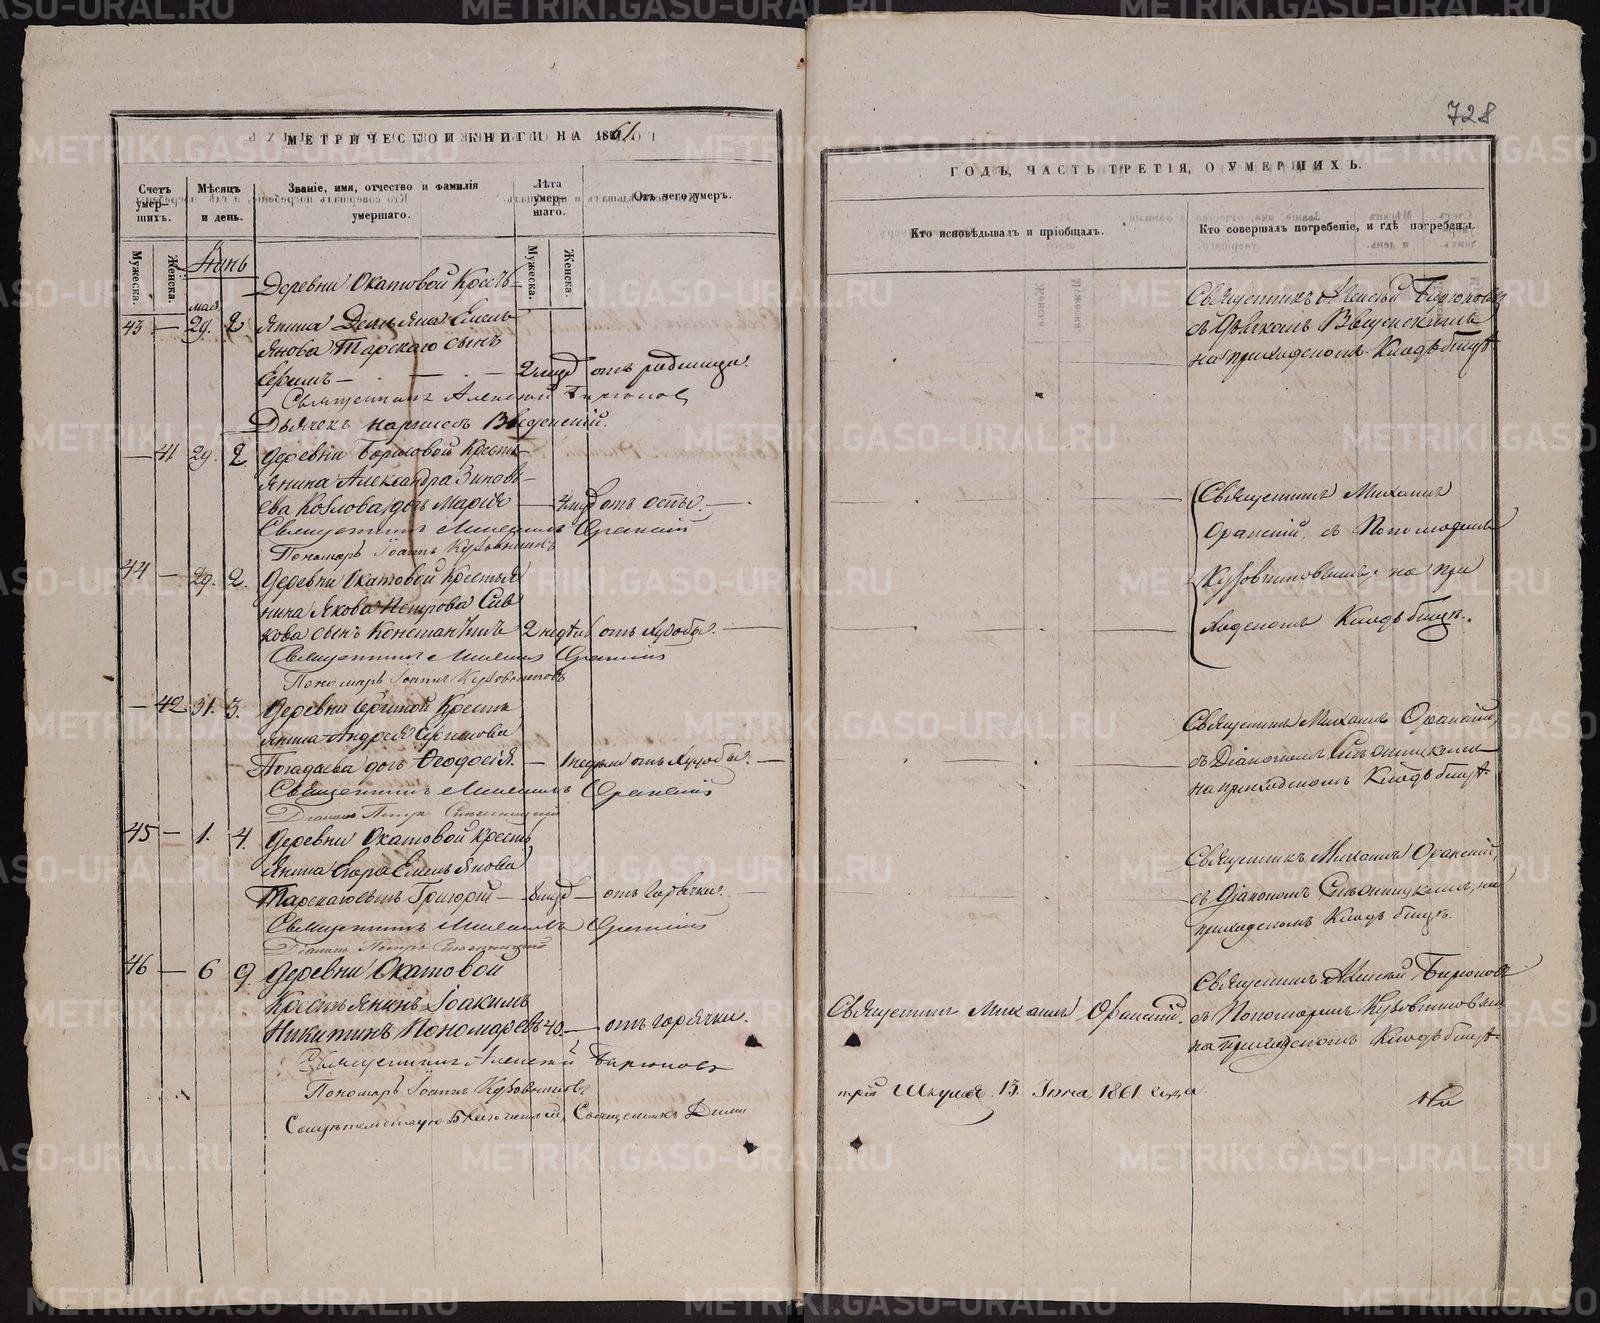 728
МЕТРИЧЕСКОЙ КНИГИ НА 1861
Счетъ умер-шихъ.
Мѣсяцъ и день.
Званіе, имя, отчество и фамилія умершаго.
Лѣта умер-шаго.
Отъ чего умеръ.
Мужеска.
Женска.
Мужеска.
Женска.
Іюнь
Деревни Окатовой Кресть-
мая
43 — 29. 2 янина Демьяна Емель
янова Тарскаго сынъ
Ефимъ — . — . — 2 мѣс отъ родимца.
Священникъ Алексѣй Бирюковъ
Дьячекъ Введенскій.
— 41 29. 2. Деревни Кресть-
янина Александра Зиновь-
ева Козлова дочь Марія — 4 отъ оспы. —
Священникъ Михаилъ Оранскій
Пономарь Іоаннъ Кузовниковъ
44 — 29. 2. Деревни Окатовой Крестья
нина Якова Петрова Сив
кова сынъ Константинъ 2 недѣль отъ худобы. —
Священникъ Михаилъ Оранскій
Пономарь Іоаннъ Кузовниковъ
— 42 31. 3. Деревни Кресть
янина Андрея Ефимова
дочь Ѳеодосія. — 1 недѣли отъ худобы. —
Священникъ Михаилъ Оранскій
Діаконъ Петръ
45 — 1. 4. Деревни Окатовой Кресть
янина Егора Емельянова
Тарскаго сынъ Григорій — 8 отъ горячки. —
Священникъ Михаилъ Оранскій
Діаконъ Петръ
46 — 6 9. Деревни Окатовой
Крестьянинъ Іоакимъ
Никитинъ Пономаревъ 40. — отъ горячки.
Священникъ Алексѣй Бирюковъ
Пономарь Іоаннъ Кузовниковъ
Свидѣтельствую Благочинный, Священникъ Дими
ГОДЪ, ЧАСТЬ ТРЕТІЯ, О УМЕРШИХЪ.
Кто исповѣдывалъ и пріобщалъ.
Кто совершалъ погребеніе, и гдѣ погребены.
Священникъ Алексѣй Бирюковъ
съ Дьячкомъ Введенскимъ
на приходскомъ Кладбищѣ.
Священникъ Михаилъ
Оранскій, съ Пономаремъ
Кузовниковымъ на при
ходскомъ Кладбищѣ.
Священникъ Михаилъ Оранскій,
съ Діакономъ
на приходскомъ Кладбищѣ.
Священникъ Михаилъ Оранскій,
съ Діакономъ на
приходскомъ Кладбищѣ.
Священникъ Михаилъ Оранскій.
Священникъ Алексѣй Бирюковъ
съ Пономаремъ Кузовниковымъ
на приходскомъ Кладбищѣ.
трій 13. Іюня 1861 года
METRIKI.GASO-URAL.RU